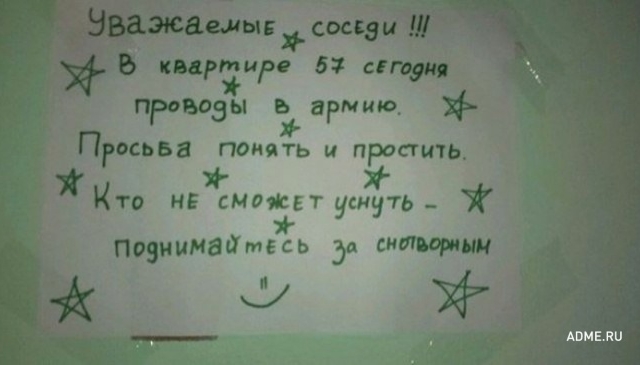 Уважаемые соседи !!!
В квартире 57 сегодня
проводы в армию.
Просьба понять и простить.
Кто не сможет уснуть -
поднимайтесь за снотворным
ADME.RU